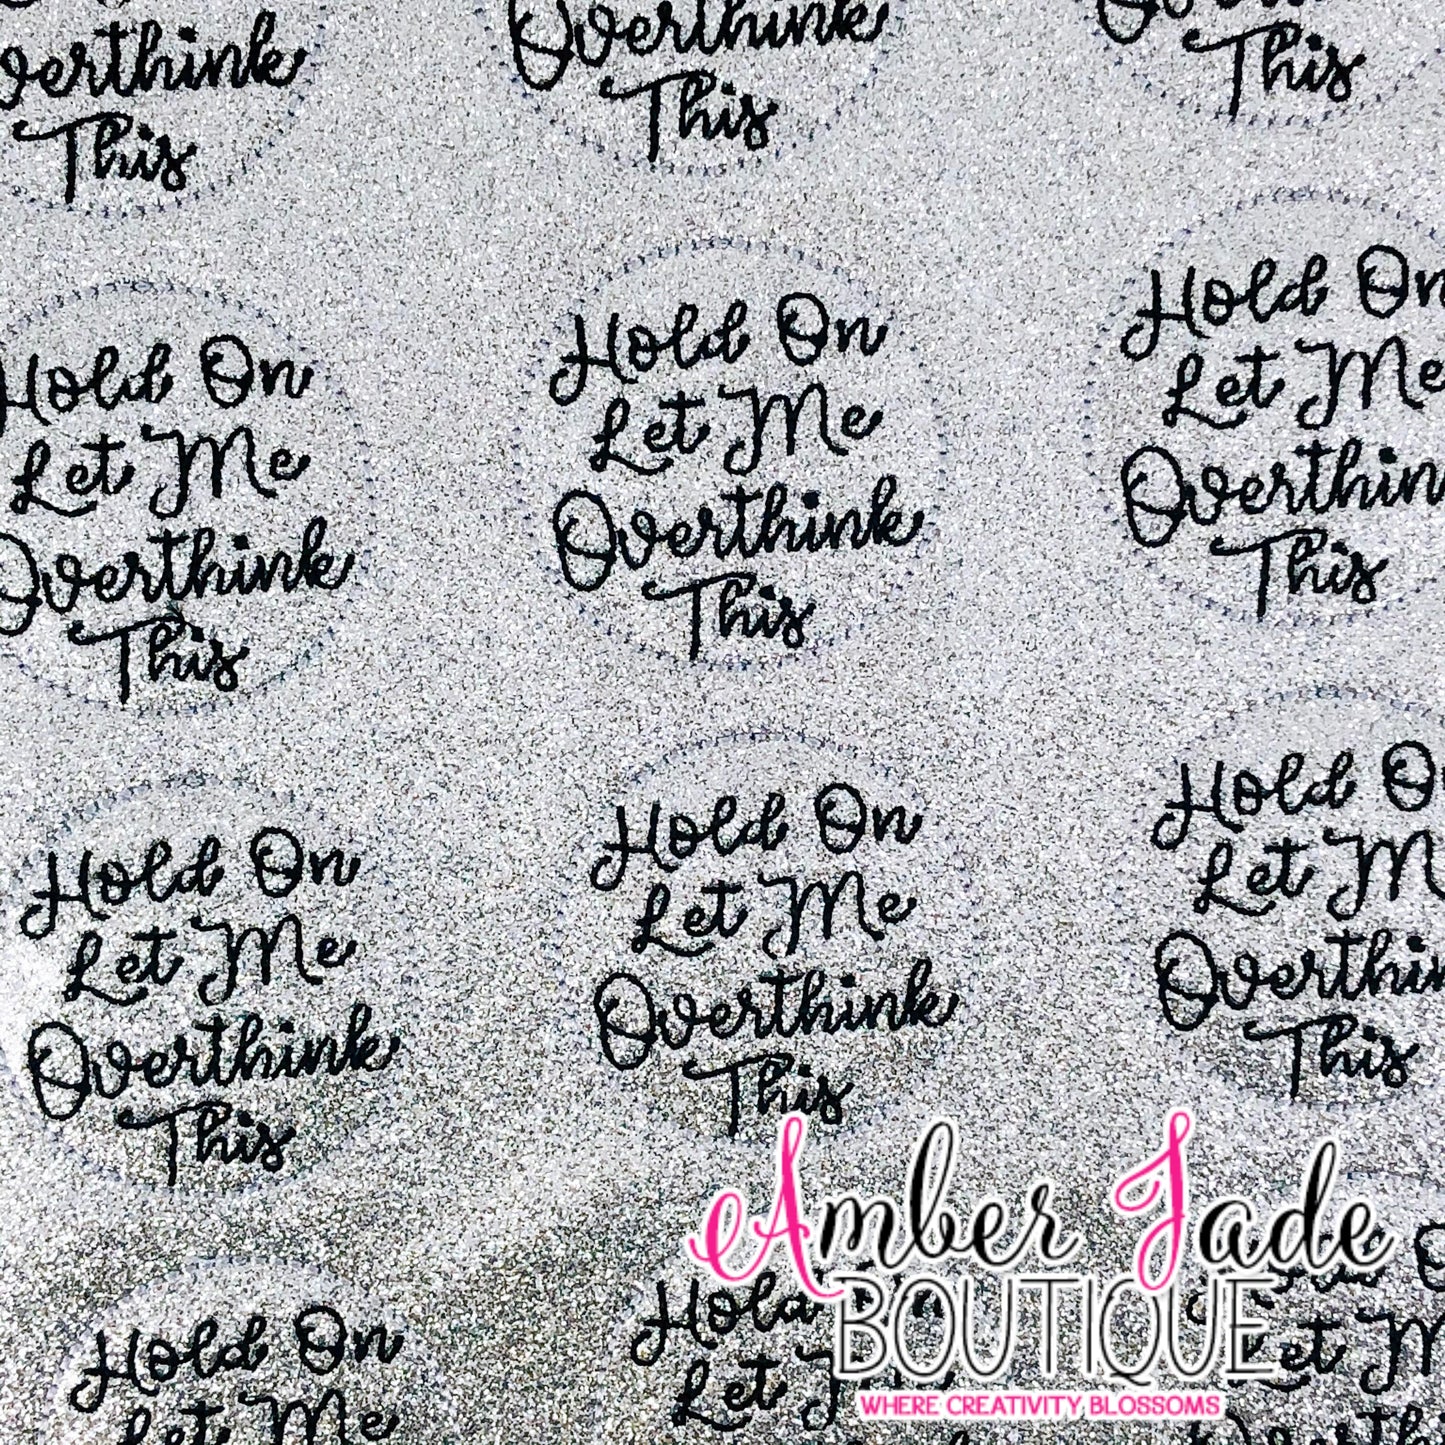 Overthink
This
Overthink
This
This
Hold On
Let Me
Overthink
This
Hold On
Let Me
Overthink
This
Hold On
Let Me
Overthin
This
Hold On
Let Me
Overthink
This
Hold On
Let Me
Overthink
This
Hold O
Let M
Overthin
This
Hold On
Let Me
Hold
Let
Let M
Amber Jade
BOUTIQUE
WHERE CREATIVITY BLOSSOMS